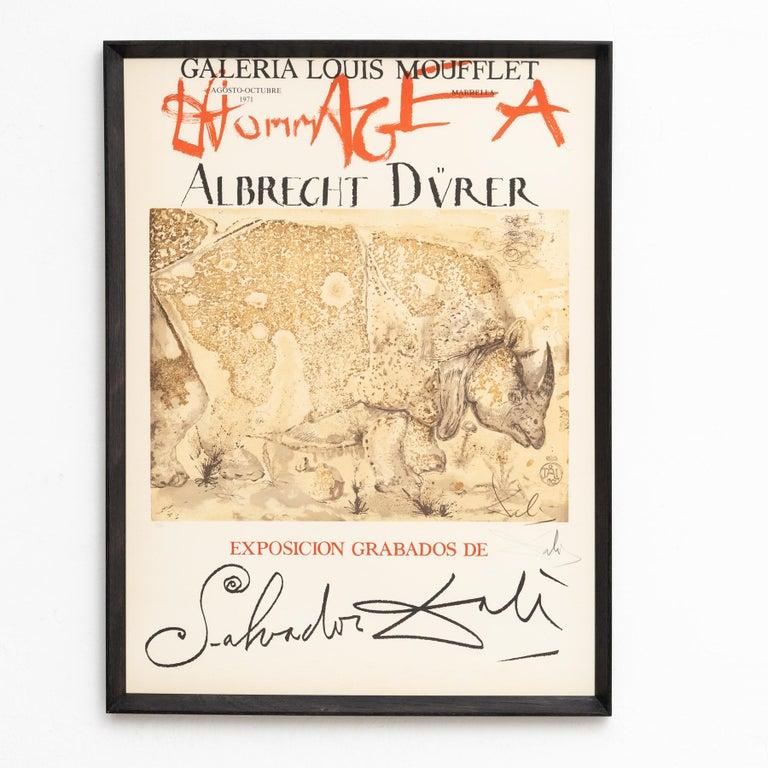 GALERIA LOUIS MOUFFLET
AGOSTO-OCTUBRE
1971
MARBELLA
HommAGE A
ALBRECHT DÜRER
Dalí
Dalí
EXPOSICION GRABADOS DE
Salvador Dalí